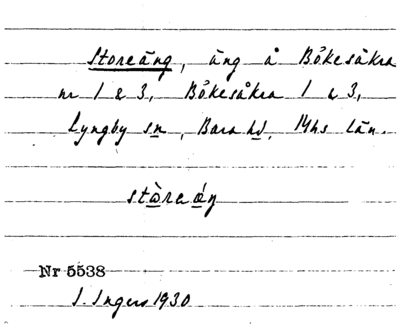 Storeäng, äng å Bökesåkra
nr 1 & 3, Bökesåkra 1 & 3,
Lyngby sn, Bara hd, Mhs län.
stòreǿŋ
Nr 5538
I. Ingers 1930